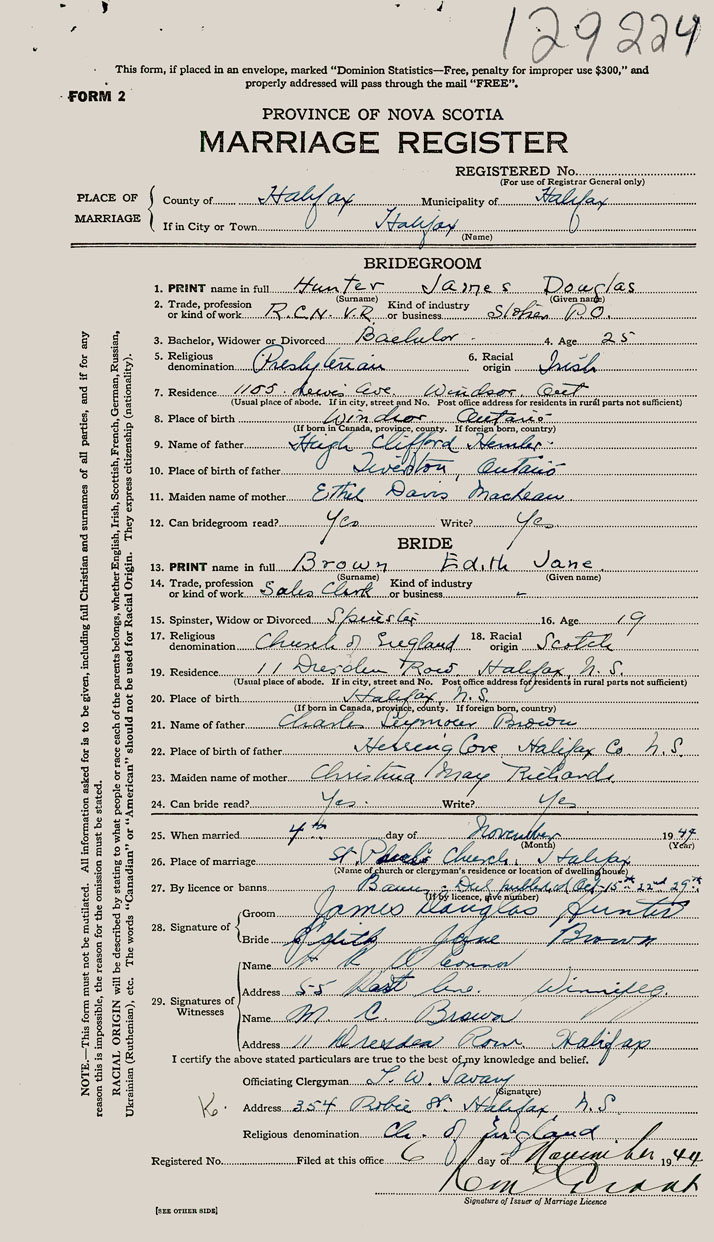 129224
This form, if placed in an envelope, marked "Dominion Statistics—Free, penalty for improper use $300," and
properly addressed will pass through the mail "FREE".
FORM 2
PROVINCE OF NOVA SCOTIA
MARRIAGE REGISTER
REGISTERED No.
(For use of Registrar General only)
PLACE OF MARRIAGE
County of Halifax Municipality of Halifax
If in City or Town Halifax
(Name)
BRIDEGROOM
1. PRINT name in full Hunter James Douglas
(Surname) (Given name)
2. Trade, profession or kind of work R.C.N.V.R. Kind of industry or business Stoker P.O.
3. Bachelor, Widower or Divorced Bachelor 4. Age 25
5. Religious denomination Presbyterian 6. Racial origin Irish
7. Residence 1105 Lewis Ave. Windsor, Ont
(Usual place of abode. If in city, street and No. Post office address for residents in rural parts not sufficient)
8. Place of birth Windsor Ontario
(If born in Canada, province, county. If foreign born, country)
9. Name of father Hugh Clifford Hunter
10. Place of birth of father Tiverton, Ontario
11. Maiden name of mother Ethel Davis MacKean
12. Can bridegroom read? Yes Write? Yes
BRIDE
13. PRINT name in full Brown Edith Jane
(Surname) (Given name)
14. Trade, profession or kind of work Sales Clerk Kind of industry or business -
15. Spinster, Widow or Divorced Spinster 16. Age 19
17. Religious denomination Church of England 18. Racial origin Scotch
19. Residence 11 Dresden Row, Halifax, N.S.
(Usual place of abode. If in city, street and No. Post office address for residents in rural parts not sufficient)
20. Place of birth Halifax, N.S.
(If born in Canada, province, county. If foreign born, country)
21. Name of father Charles Seymour Brown
22. Place of birth of father Herring Cove, Halifax Co N.S.
23. Maiden name of mother Christina May Richards
24. Can bride read? Yes. Write? Yes
25. When married 4th day of November 1944
(Month) (Year)
26. Place of marriage St. Paul's Church, Halifax
(Name of church or clergyman's residence or location of dwelling house)
27. By licence or banns Banns - Duly published Oct. 15th 22nd 29th
(If by licence, give number)
28. Signature of
Groom James Douglas Hunter
Bride Edith Jane Brown
29. Signatures of Witnesses
Name H R O'Connor
Address 55 Ave. Winnipeg.
Name M. C. Brown
Address 11 Dresden Row Halifax
I certify the above stated particulars are true to the best of my knowledge and belief.
Officiating Clergyman T. W. Savary
(Signature)
K. Address 354 Robie St. Halifax, N.S.
Religious denomination Ch. of England
Registered No. Filed at this office 6 day of November 1944
Grant
Signature of Issuer of Marriage Licence
[SEE OTHER SIDE]
NOTE.—This form must not be mutilated. All information asked for is to be given, including full Christian and surnames of all parties, and if for any
reason this is impossible, the reason for the omission must be stated.
RACIAL ORIGIN will be described by stating to what people or race each of the parents belongs, whether English, Irish, Scottish, French, German, Russian,
Ukrainian (Ruthenian), etc. The words "Canadian" or "American" should not be used for Racial Origin. They express citizenship (nationality).